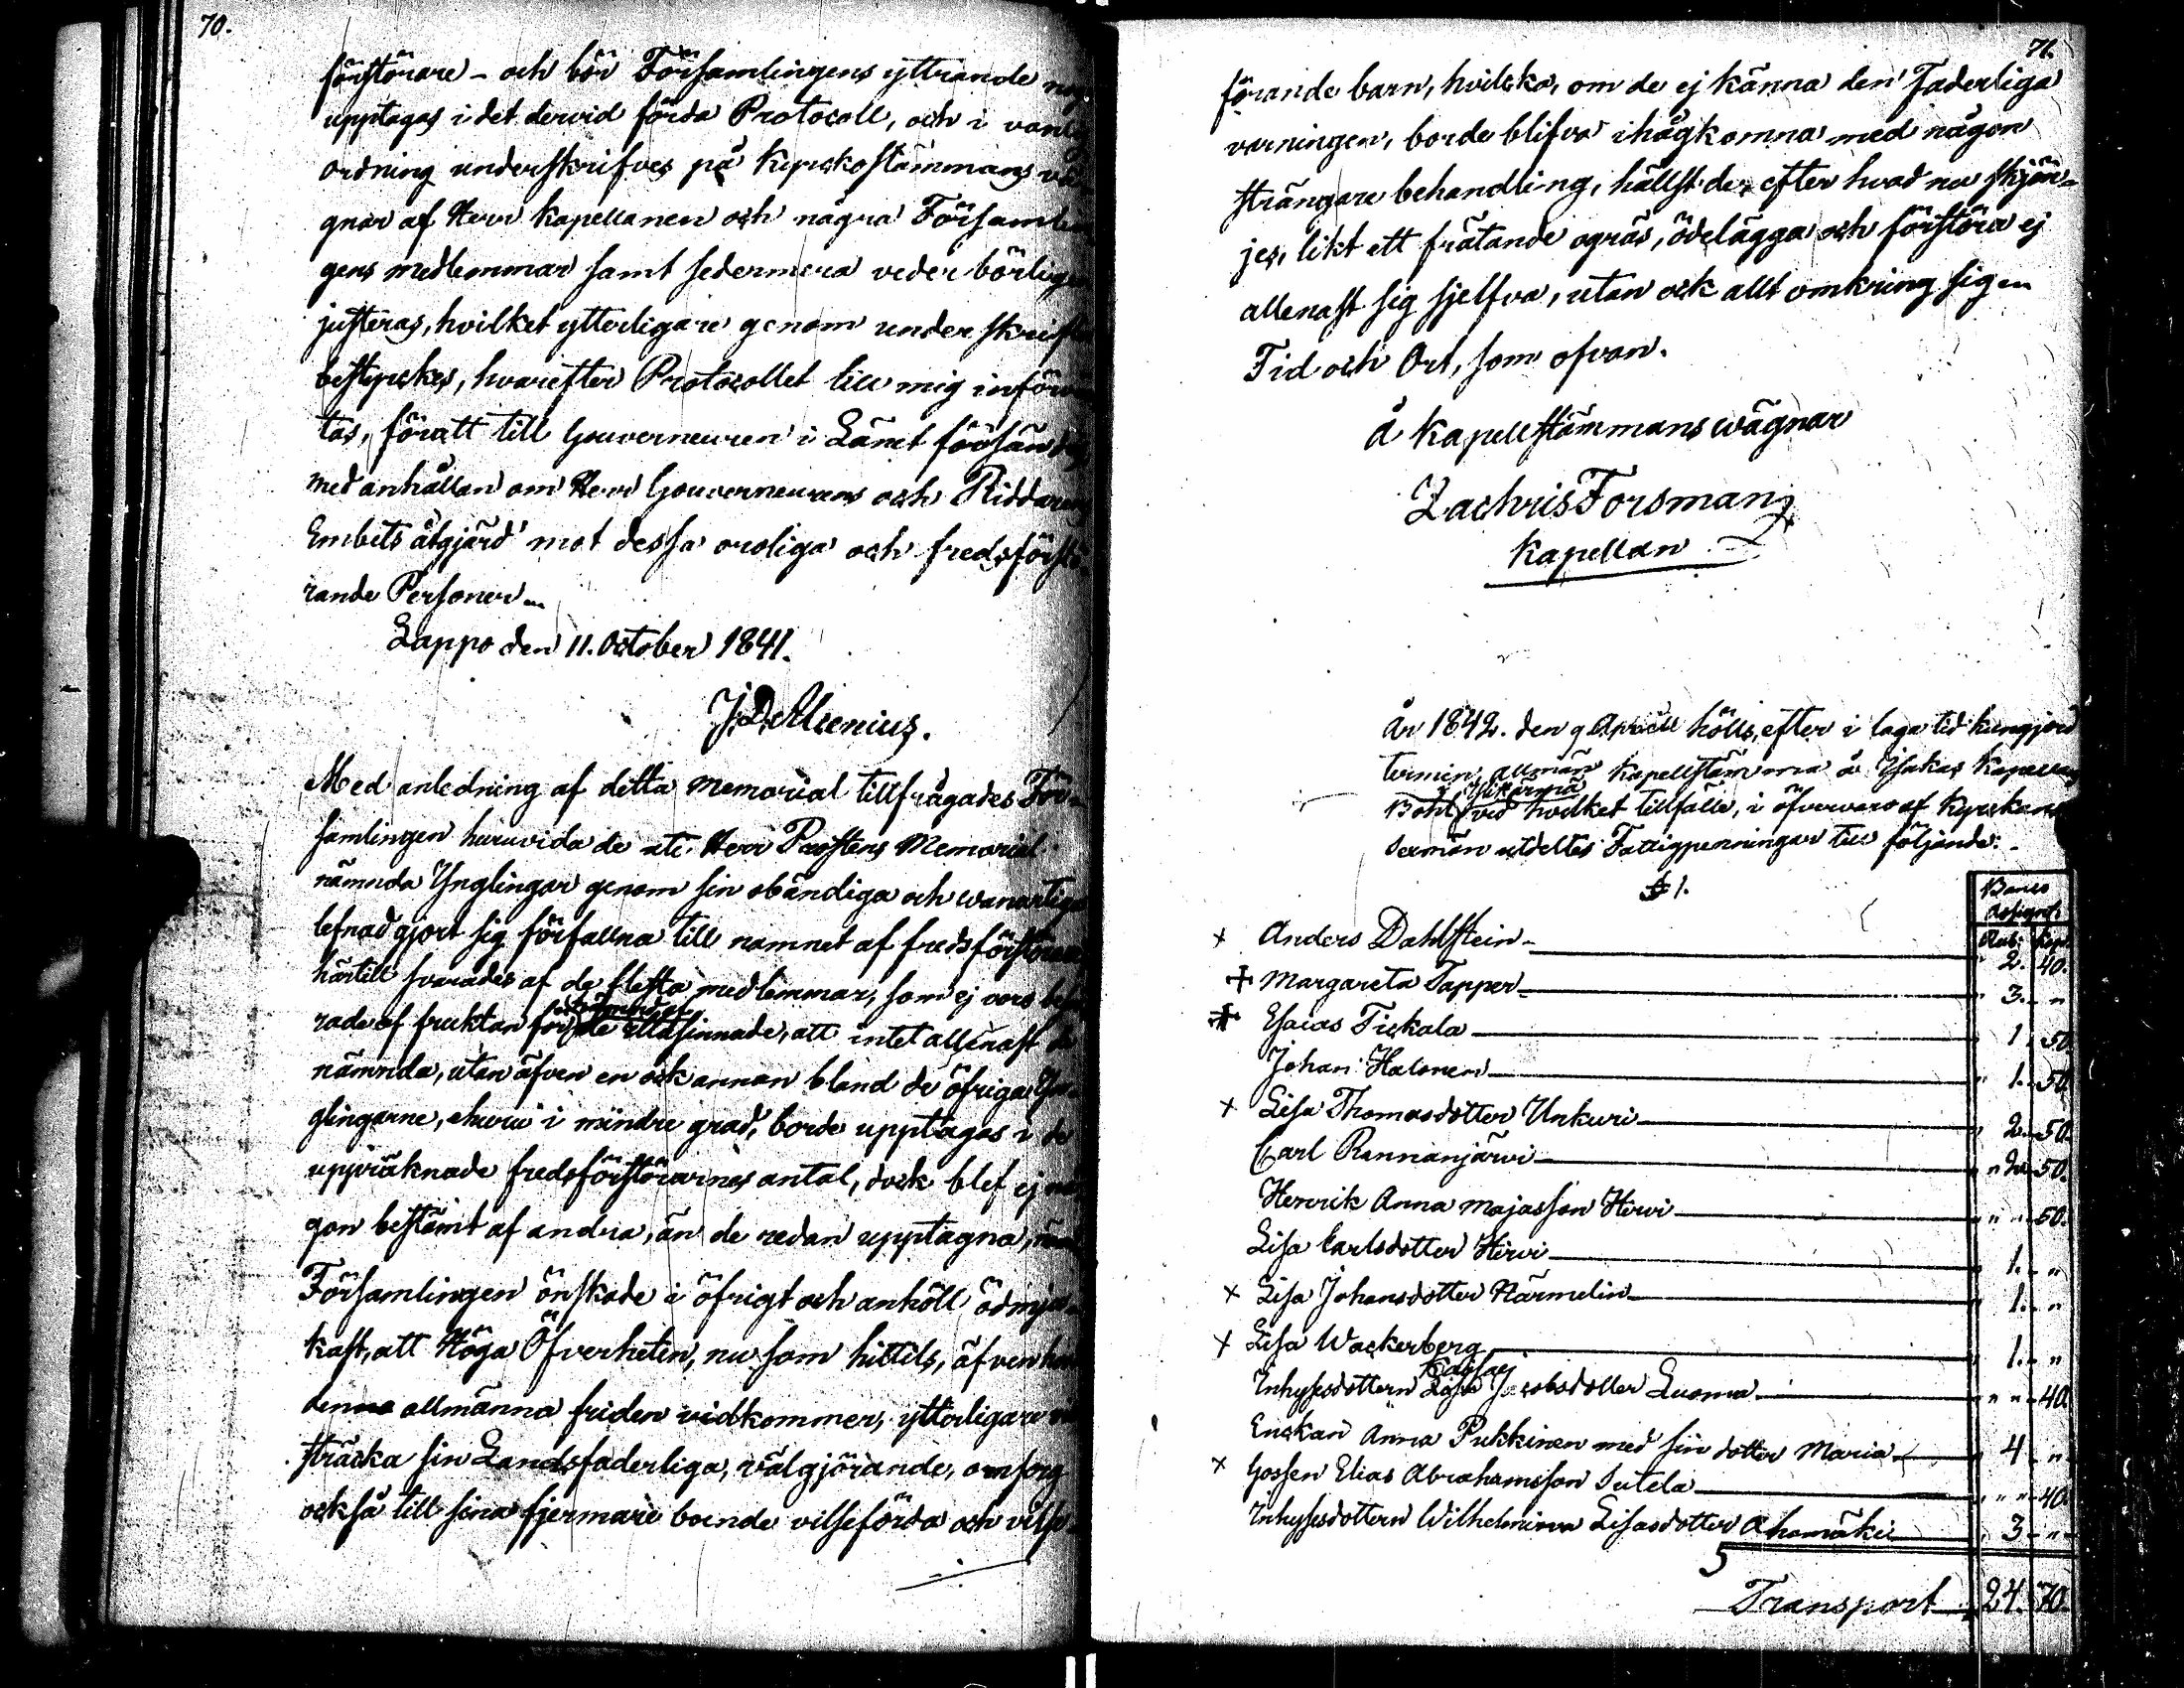 70.
förstörare – och bör Församlingens yttrande
upptagas i det dervid förda Protocoll, och i vanlig
ordning underskrifves på Kyrkostämmans väg-
gnar af Herr Kapellanen och några Församlin
gens medlemmar samt sedermera vederbörligen
justeras, hvilket ytterligare genom underskrift
bestyrkes, hvarefter Protocollet till mig införvän
tas, föratt till Gouverneuren i Länet försändas
med anhållan om Herr Gouverneurens och Riddarens
Embets åtgjärd mot dessa oroliga och fredsförstö-
rande Personer.
Lappo den 11. October 1841.
J. D. Alcenius.
Med anledning af detta Memorial tillfrågades För-
samlingen huruvida de uti Herr Prostens Memorial
nämnda Ynglingar genom sin obändiga och wanartiga
lefnad gjort sig förfallna till namnet af fredsförstörare
härtill svarades af de flesta medlemmar, som ej voro
rade af fruktan för de illasinnade, att intet allenast de
nämnda, utan äfven en ock annan bland de öfriga Yn-
glingarne, ehuru i mindre grad, borde upptagas i de
uppräknade fredsförstörarnes antal, dock blef ej nå-
gon bestämt af andra, än de redan upptagna,
Församlingen önskade i öfrigt och anhöll ödmju-
kast, att Höga Öfverheten, nu som hittils, äfven hvad
den allmänna friden vidkommer, ytterligare
sträcka sin Landsfaderliga, välgjörande, omsorg
också till sina fjermare boende vilseförda och vilse-
71.
förande barn, hvilka, om de ej känna den Faderliga
varningen, borde blifva ihågkomna med någon
strängare behandling, hällst de, efter hvad nu skjön-
jes, likt ett frätande ogräs, ödelägga och förstöra ej
allenast sig sjelfva, utan ock allt omkring sig
Tid och Ort, som ofvan.
å Kapellstämmans wägnar
Zachris Forsman
Kapellan
År 1842. den 9 Aprill hölls, efter i laga tid kungjord
termin, allmän Kapellstämma å Isakas Kapellans
i Ylikärmä
Bohl, vid hvilket tillfälle, i öfvervaro af Kyrkans
sexmän utdeltes Fattigpenningar till följande:
§ 1.
Banco
Assignat:
Rub: Kop.
+ Anders Dahlstein – " 2. 40.
+ Margareta Tapper – " 3. "
+ Esaias Tiskala – " 1. 50.
Johan Halonen – " 1. 50.
+ Lisa Thomasdotter Unkuri – " 2. 50.
Carl Rannanjärvi – " 2. 50.
Henrik Anna Majasson Hirvi – " " 50.
Lisa Carlsdotter Hirvi – " 1. "
+ Lisa Johansdotter Härmelin – " 1. "
+ Lisa Wackerberg – " 1. "
Cajsa
Inhysesdottern Lisa Jacobsdotter Luoma – " " 40.
Enckan Anna Pukkinen med sin dotter Maria – " 4 "
+ Gossen Elias Abrahamsson Sutela – " " 40.
Inhysesdottern Wilhelmina Lisasdotter Ahomäki – " 3 "
Transport 24. 70.